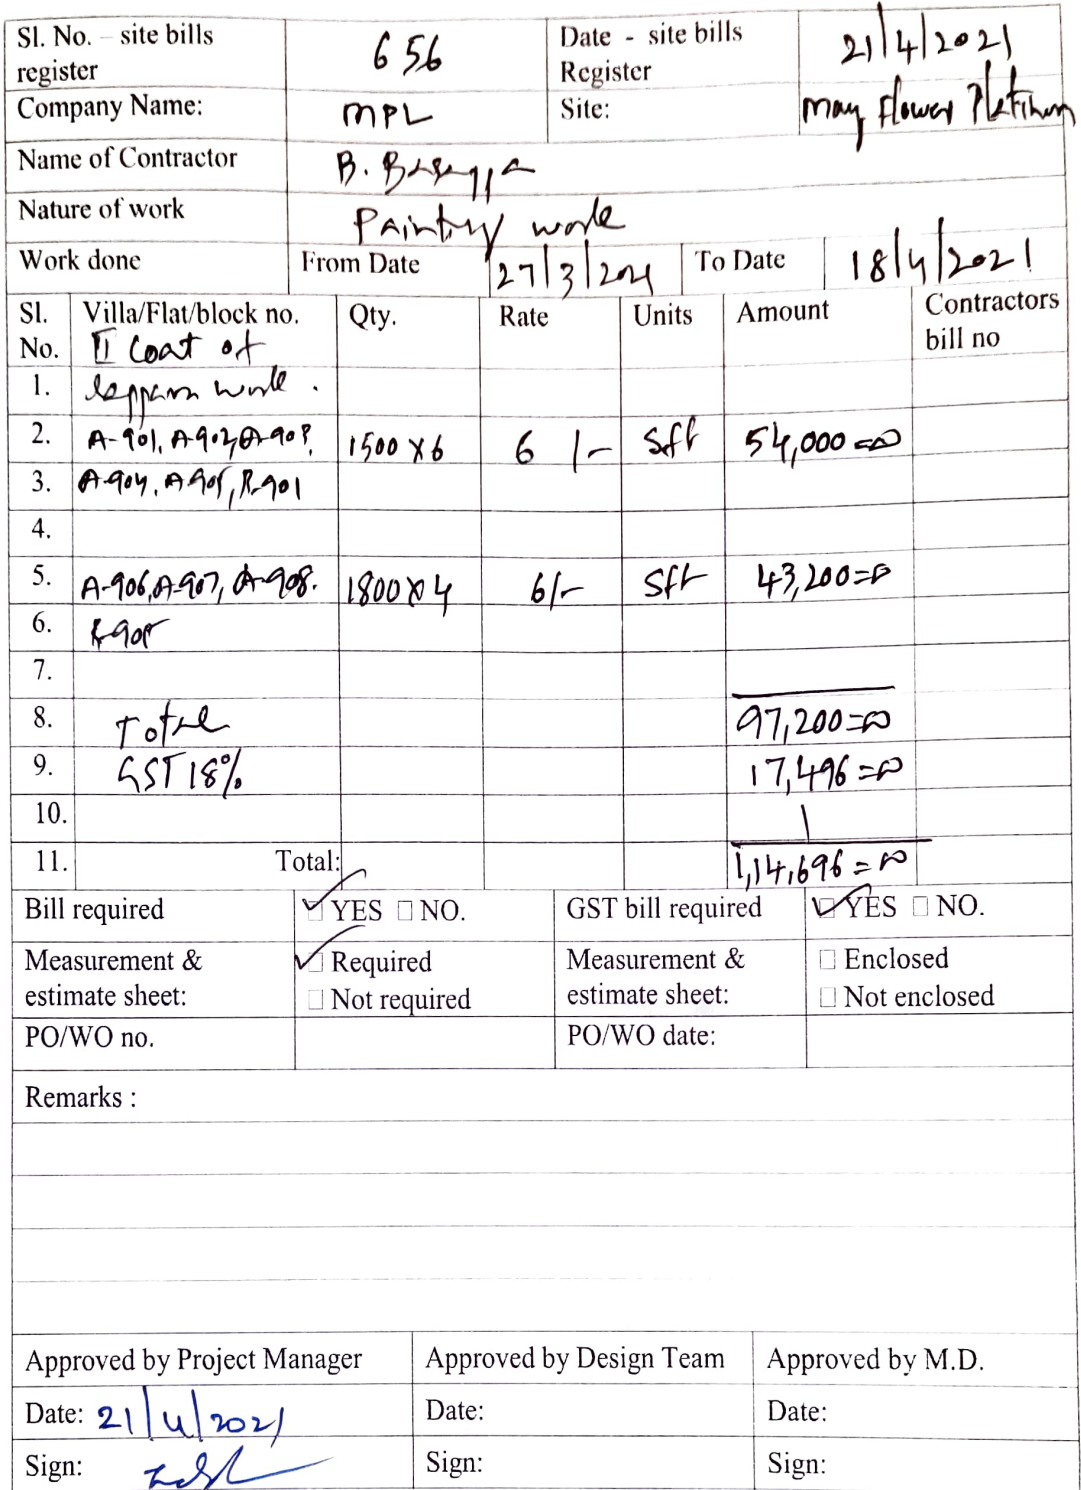 Sl. No. – site bills register 656 Date - site bills Register 21/4/2021
Company Name: MPL Site: May Flower Platinum
Name of Contractor B. Basappa
Nature of work Painting work
Work done From Date 27/3/2021 To Date 18/4/2021
Sl. No. Villa/Flat/block no. Qty. Rate Units Amount Contractors bill no
II Coat of
1. lappam work.
2. A-901, A-902, A-903, 1500 X 6 6/- Sft 54,000=00
3. A-904, A-905, R-901
4.
5. A-906, A-907, A-908. 1800 X 4 6/- Sft 43,200=00
6. 905
7.
8. Total 97,200=00
9. GST 18% 17,496=00
10.
11. Total: 1,14,696=00
Bill required ☑ YES □ NO. GST bill required ☑ YES □ NO.
Measurement & estimate sheet: ☑ Required □ Not required Measurement & estimate sheet: □ Enclosed □ Not enclosed
PO/WO no. PO/WO date:
Remarks :
Approved by Project Manager Approved by Design Team Approved by M.D.
Date: 21/4/2021 Date: Date:
Sign: Sign: Sign: